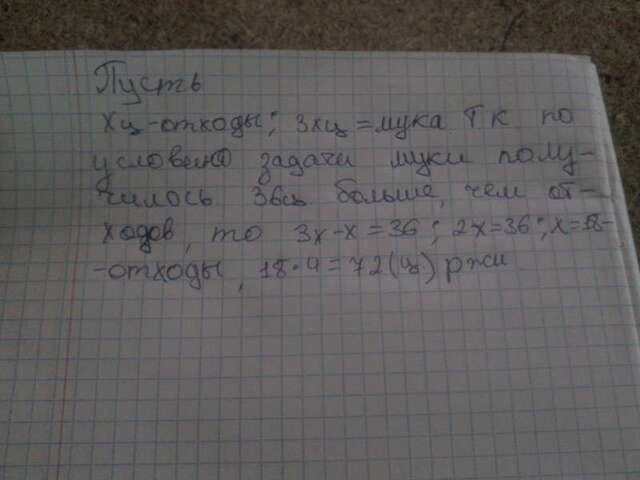 Пусть
Xц-отходы; 3xц=мука Т К по
условию задачи муки полу-
чилось 36ц больше, чем от-
ходов, то 3x-x=36; 2x=36; x=18-
-отходы, 18·4=72(ц) ржи